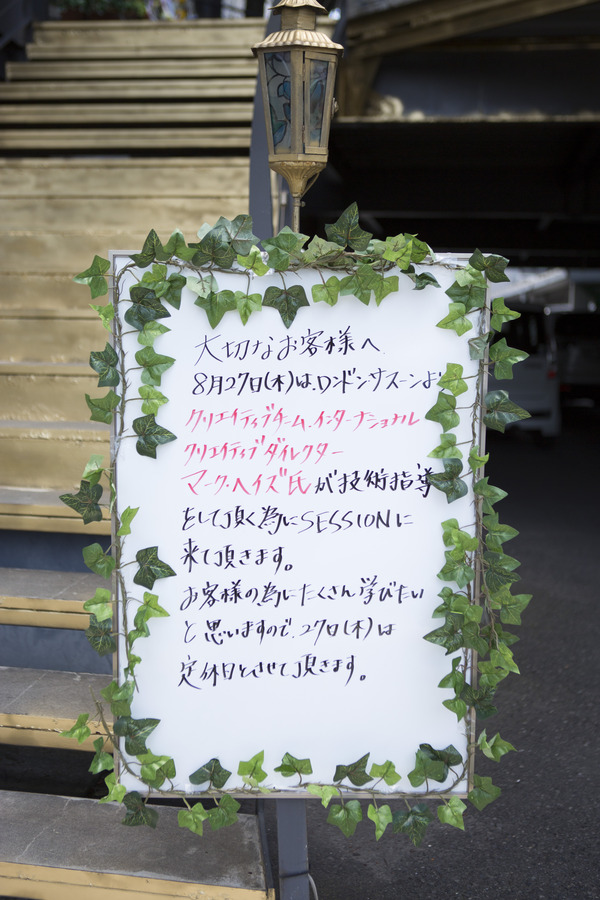 大切なお客様へ
8月27日(木)は、ロンドンサスーンより
クリエイティブチーム、インターナショナル
クリエイティブダイレクター
マーク・ヘイズ氏が技術指導
をして頂く為にSESSIONに
来て頂きます。
お客様の為にたくさん学びたい
と思いますので、27日(木)は
定休日とさせて頂きます。